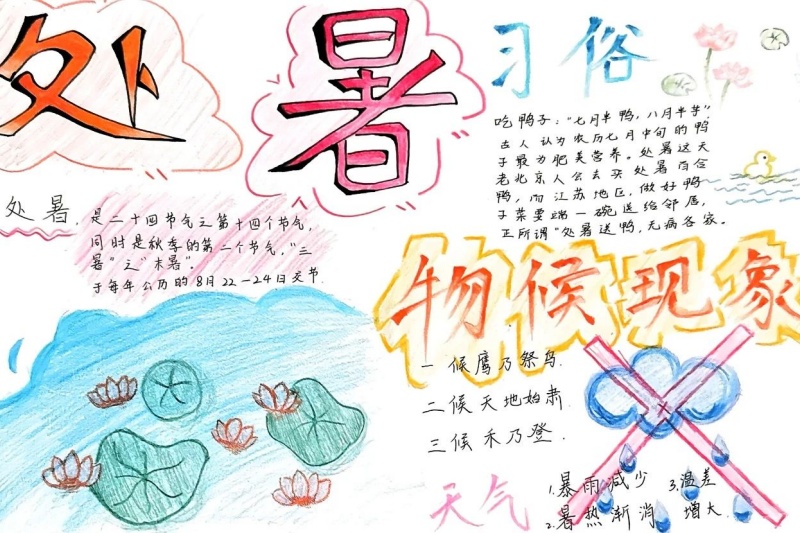 处暑
处暑，是二十四节气之第十四个节气，
同时是秋季的第二个节气，"三
暑"之"末暑"。
于每年公历的8月22-24日交节.
习俗
吃鸭子："七月半鸭，八月半芋"，
古人认为农历七月中旬的鸭
子最为肥美营养。处暑这天
老北京人会去买处暑百合
鸭，而江苏地区，做好鸭
子菜要端一碗送给邻居，
正所谓"处暑送鸭，无病各家.
物候现象
一候鹰乃祭鸟.
二候天地始肃.
三候禾乃登.
天气
1.暴雨减少 3.温差
2.暑热渐消 增大.